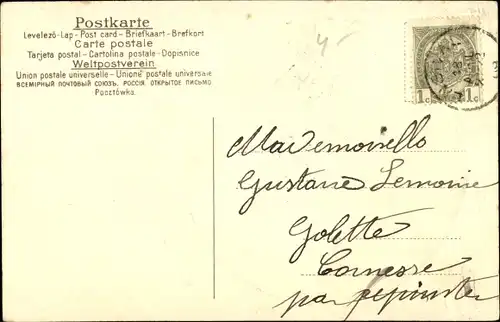 Postkarte
Levelező-Lap - Post card - Briefkaart - Brefkort
Carte postale
Tarjeta postal - Cartolina postale - Dopisnice
Weltpostverein
Union postale universelle - Unione postale universale
ВСЕМІРНЫЙ ПОЧТОВЫЙ СОЮЗЪ. РОССІЯ. ОТКРЫТОЕ ПИСЬМО
Pocztówka.
4-
1c 1c
Mademoiselle
Gustave Lemoine
Golette
Cornesse
par pepinster